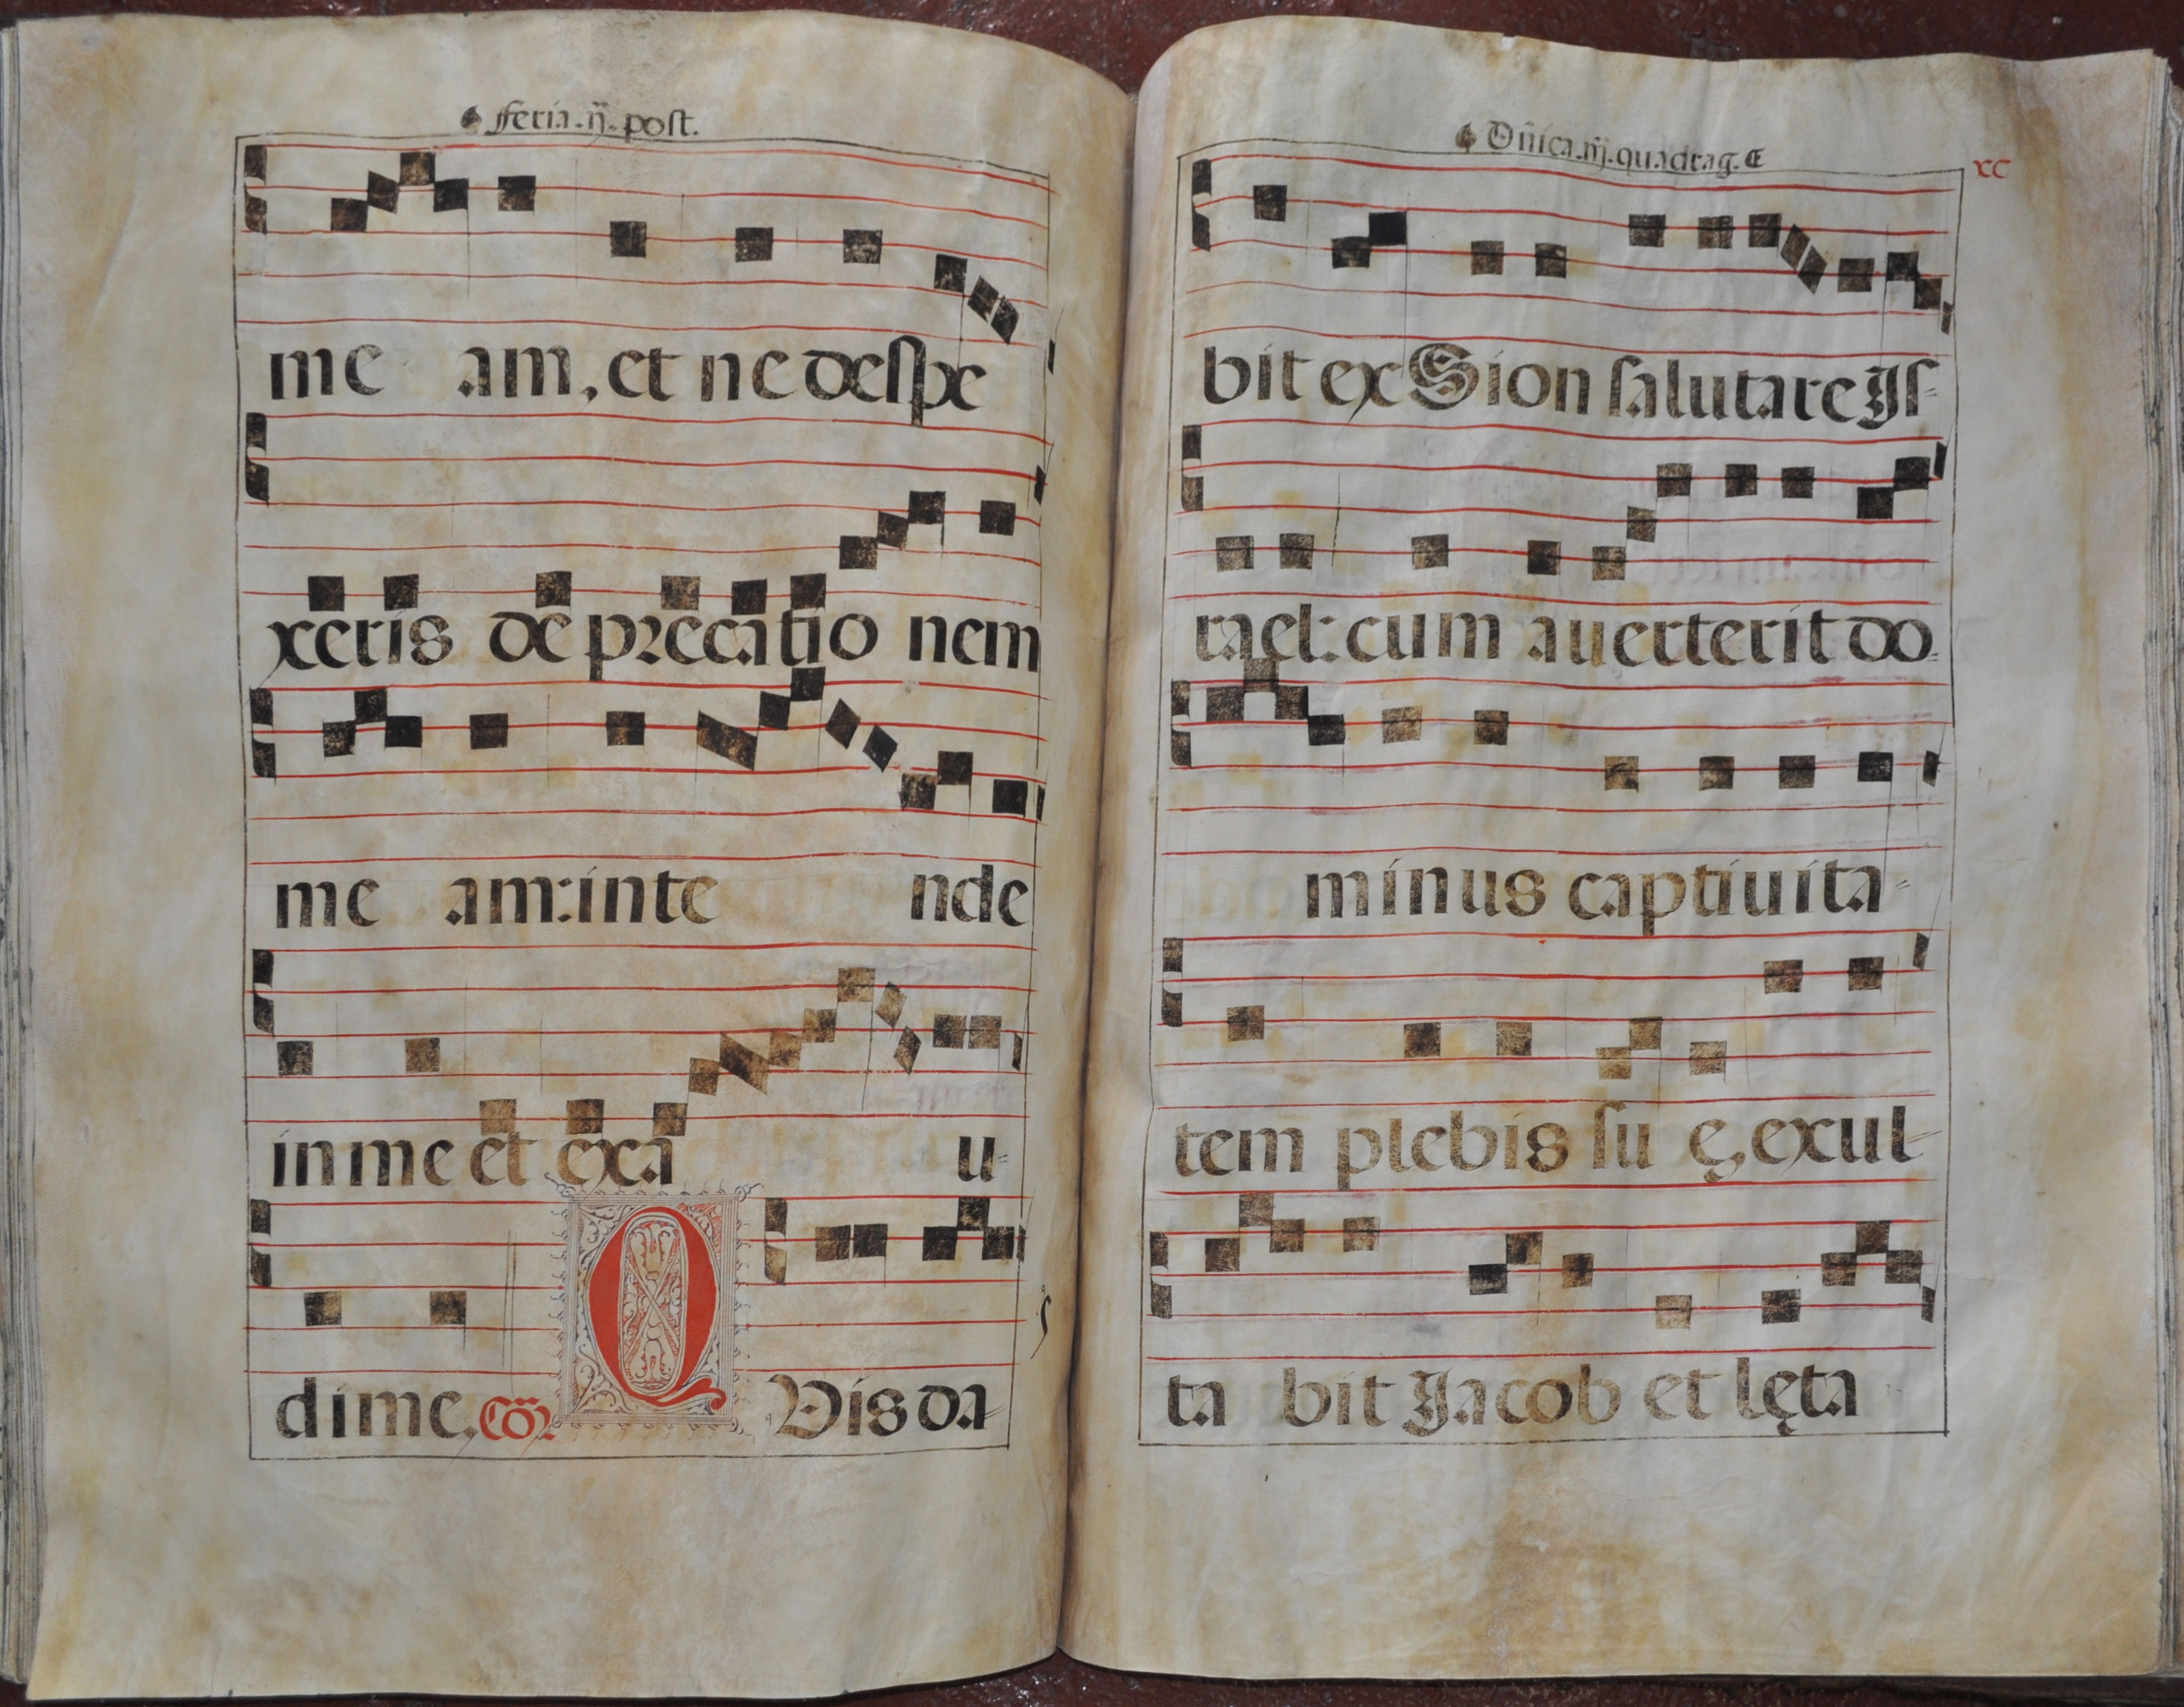 feria. ij. post.
me am, et ne despe
xeris de precatio nem
me am: inte nde
in me et exa u-
di me. Cõm Q Vis da-
Dñica. iij. quadrag. E
xc
bit ex Sion salutare Is-
rael: cum auerterit do-
minus captiuita-
tem plebis su ę, exul-
ta bit Jacob et lęta